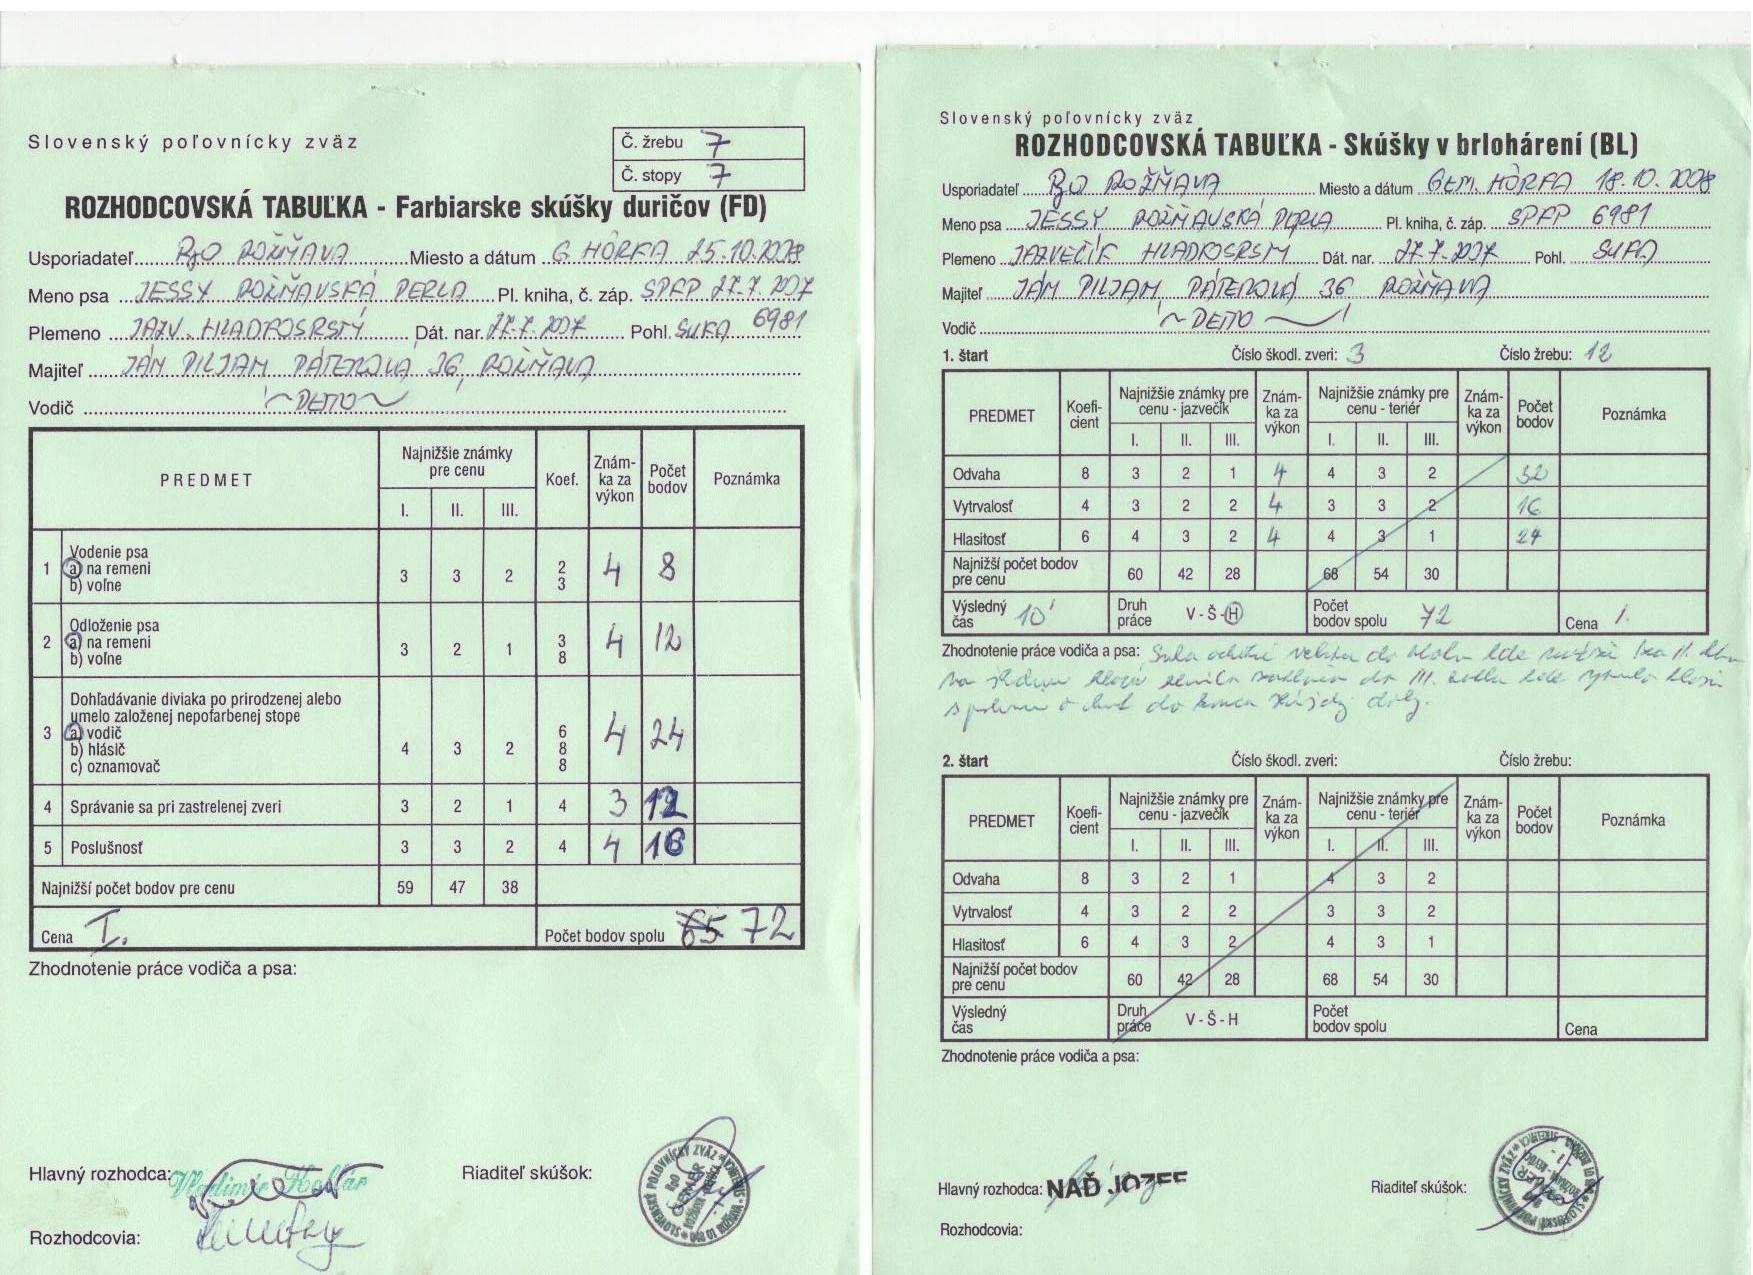 Slovenský poľovnícky zväz
Č. žrebu 7
Č. stopy 7
ROZHODCOVSKÁ TABUĽKA - Farbiarske skúšky duričov (FD)
Usporiadateľ RgO ROŽŇAVA Miesto a dátum G. HÔRKA 25.10.2008
Meno psa JESSY ROŽŇAVSKÁ PERLA Pl. kniha, č. záp. SPKP 27.7.2007
Plemeno JAZV. HLADKOSRSTÝ Dát. nar. 27.7.2007 Pohl. SUKA 6981
Majiteľ JÁN PILJAM PÁTEROVÁ 36, ROŽŇAVA
Vodič ~DETTO~
PREDMET Najnižšie známky pre cenu Koef. Znám-ka za výkon Počet bodov Poznámka
I. II. III.
1 Vodenie psa
a) na remeni 3 3 2 2 4 8
b) voľne 3
2 Odloženie psa
a) na remeni 3 2 1 3 4 12
b) voľne 8
3 Dohľadávanie diviaka po prirodzenej alebo
umelo založenej nepofarbenej stope
a) vodič 4 3 2 6 4 24
b) hlásič 8
c) oznamovač 8
4 Správanie sa pri zastrelenej zveri 3 2 1 4 3 12
5 Poslušnosť 3 3 2 4 4 16
Najnižší počet bodov pre cenu 59 47 38
Cena I. Počet bodov spolu 65 72
Zhodnotenie práce vodiča a psa:
Hlavný rozhodca: Vladimír Kollár Riaditeľ skúšok:
Rozhodcovia:
Slovenský poľovnícky zväz
ROZHODCOVSKÁ TABUĽKA - Skúšky v brlohárení (BL)
Usporiadateľ RgO ROŽŇAVA Miesto a dátum GEM. HÔRKA 18.10.2008
Meno psa JESSY ROŽŇAVSKÁ PERLA Pl. kniha, č. záp. SPKP 6981
Plemeno JAZVEČÍK HLADKOSRSTÝ Dát. nar. 27.7.2007 Pohl. SUKA
Majiteľ JÁN PILJAM, PÁTEROVÁ 36 ROŽŇAVA
Vodič ~DETTO~
1. štart Číslo škodl. zveri: 3 Číslo žrebu: 12
PREDMET Koefi-cient Najnižšie známky pre cenu - jazvečík Znám-ka za výkon Najnižšie známky pre cenu - teriér Znám-ka za výkon Počet bodov Poznámka
I. II. III. I. II. III.
Odvaha 8 3 2 1 4 4 3 2 32
Vytrvalosť 4 3 2 2 4 3 3 2 16
Hlasitosť 6 4 3 2 4 4 3 1 24
Najnižší počet bodov pre cenu 60 42 28 68 54 30
Výsledný čas 10' Druh práce V - Š - H Počet bodov spolu 72 Cena I.
Zhodnotenie práce vodiča a psa:
2. štart Číslo škodl. zveri: Číslo žrebu:
PREDMET Koefi-cient Najnižšie známky pre cenu - jazvečík Znám-ka za výkon Najnižšie známky pre cenu - teriér Znám-ka za výkon Počet bodov Poznámka
I. II. III. I. II. III.
Odvaha 8 3 2 1 4 3 2
Vytrvalosť 4 3 2 2 3 3 2
Hlasitosť 6 4 3 2 4 3 1
Najnižší počet bodov pre cenu 60 42 28 68 54 30
Výsledný čas Druh práce V - Š - H Počet bodov spolu Cena
Zhodnotenie práce vodiča a psa:
Hlavný rozhodca: NAĎ JOZEF Riaditeľ skúšok:
Rozhodcovia: